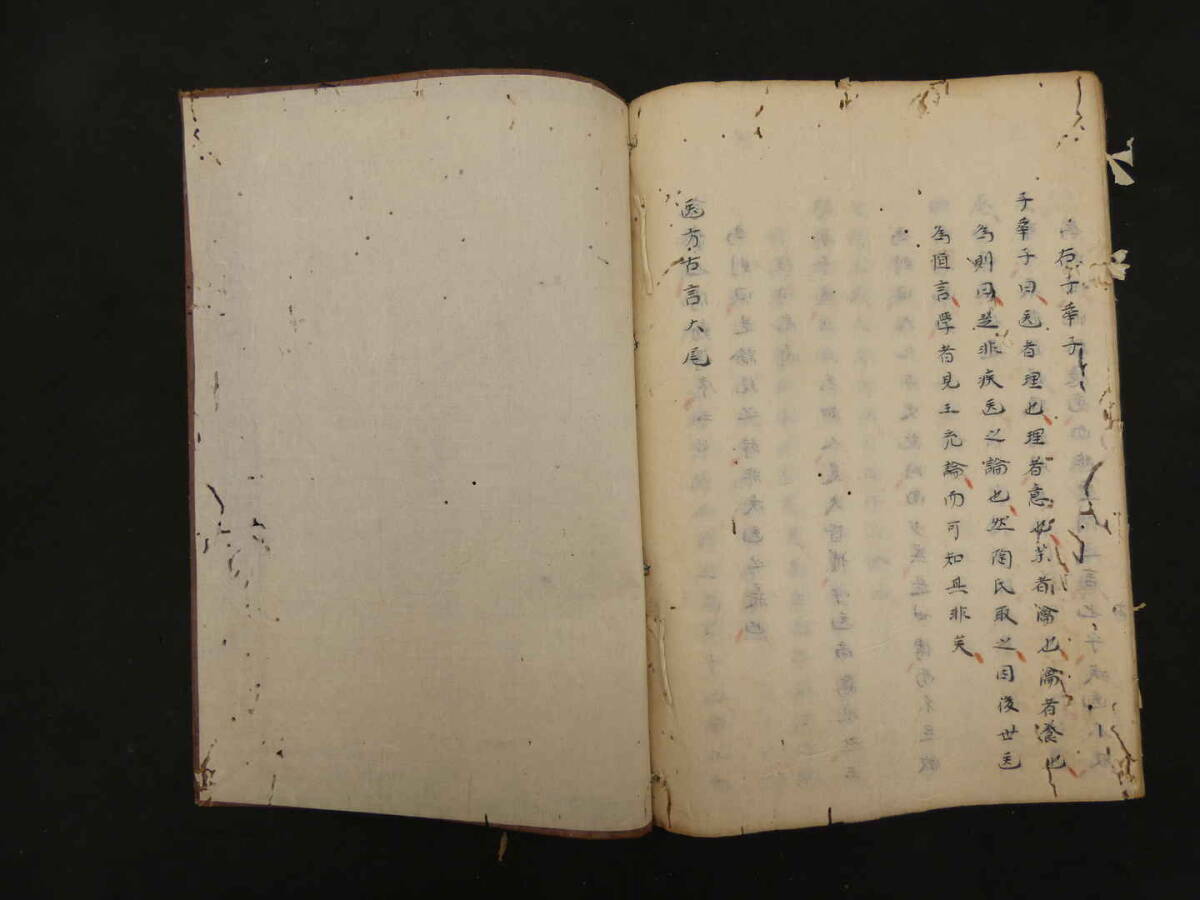 右子華子
子華子曰医者理也理者意也薬者瀹也瀹者養也
為則曰是非疾医之論也然陶氏取之因後世医
為恒言學者見王充論而可知其非矣
医方古言大尾